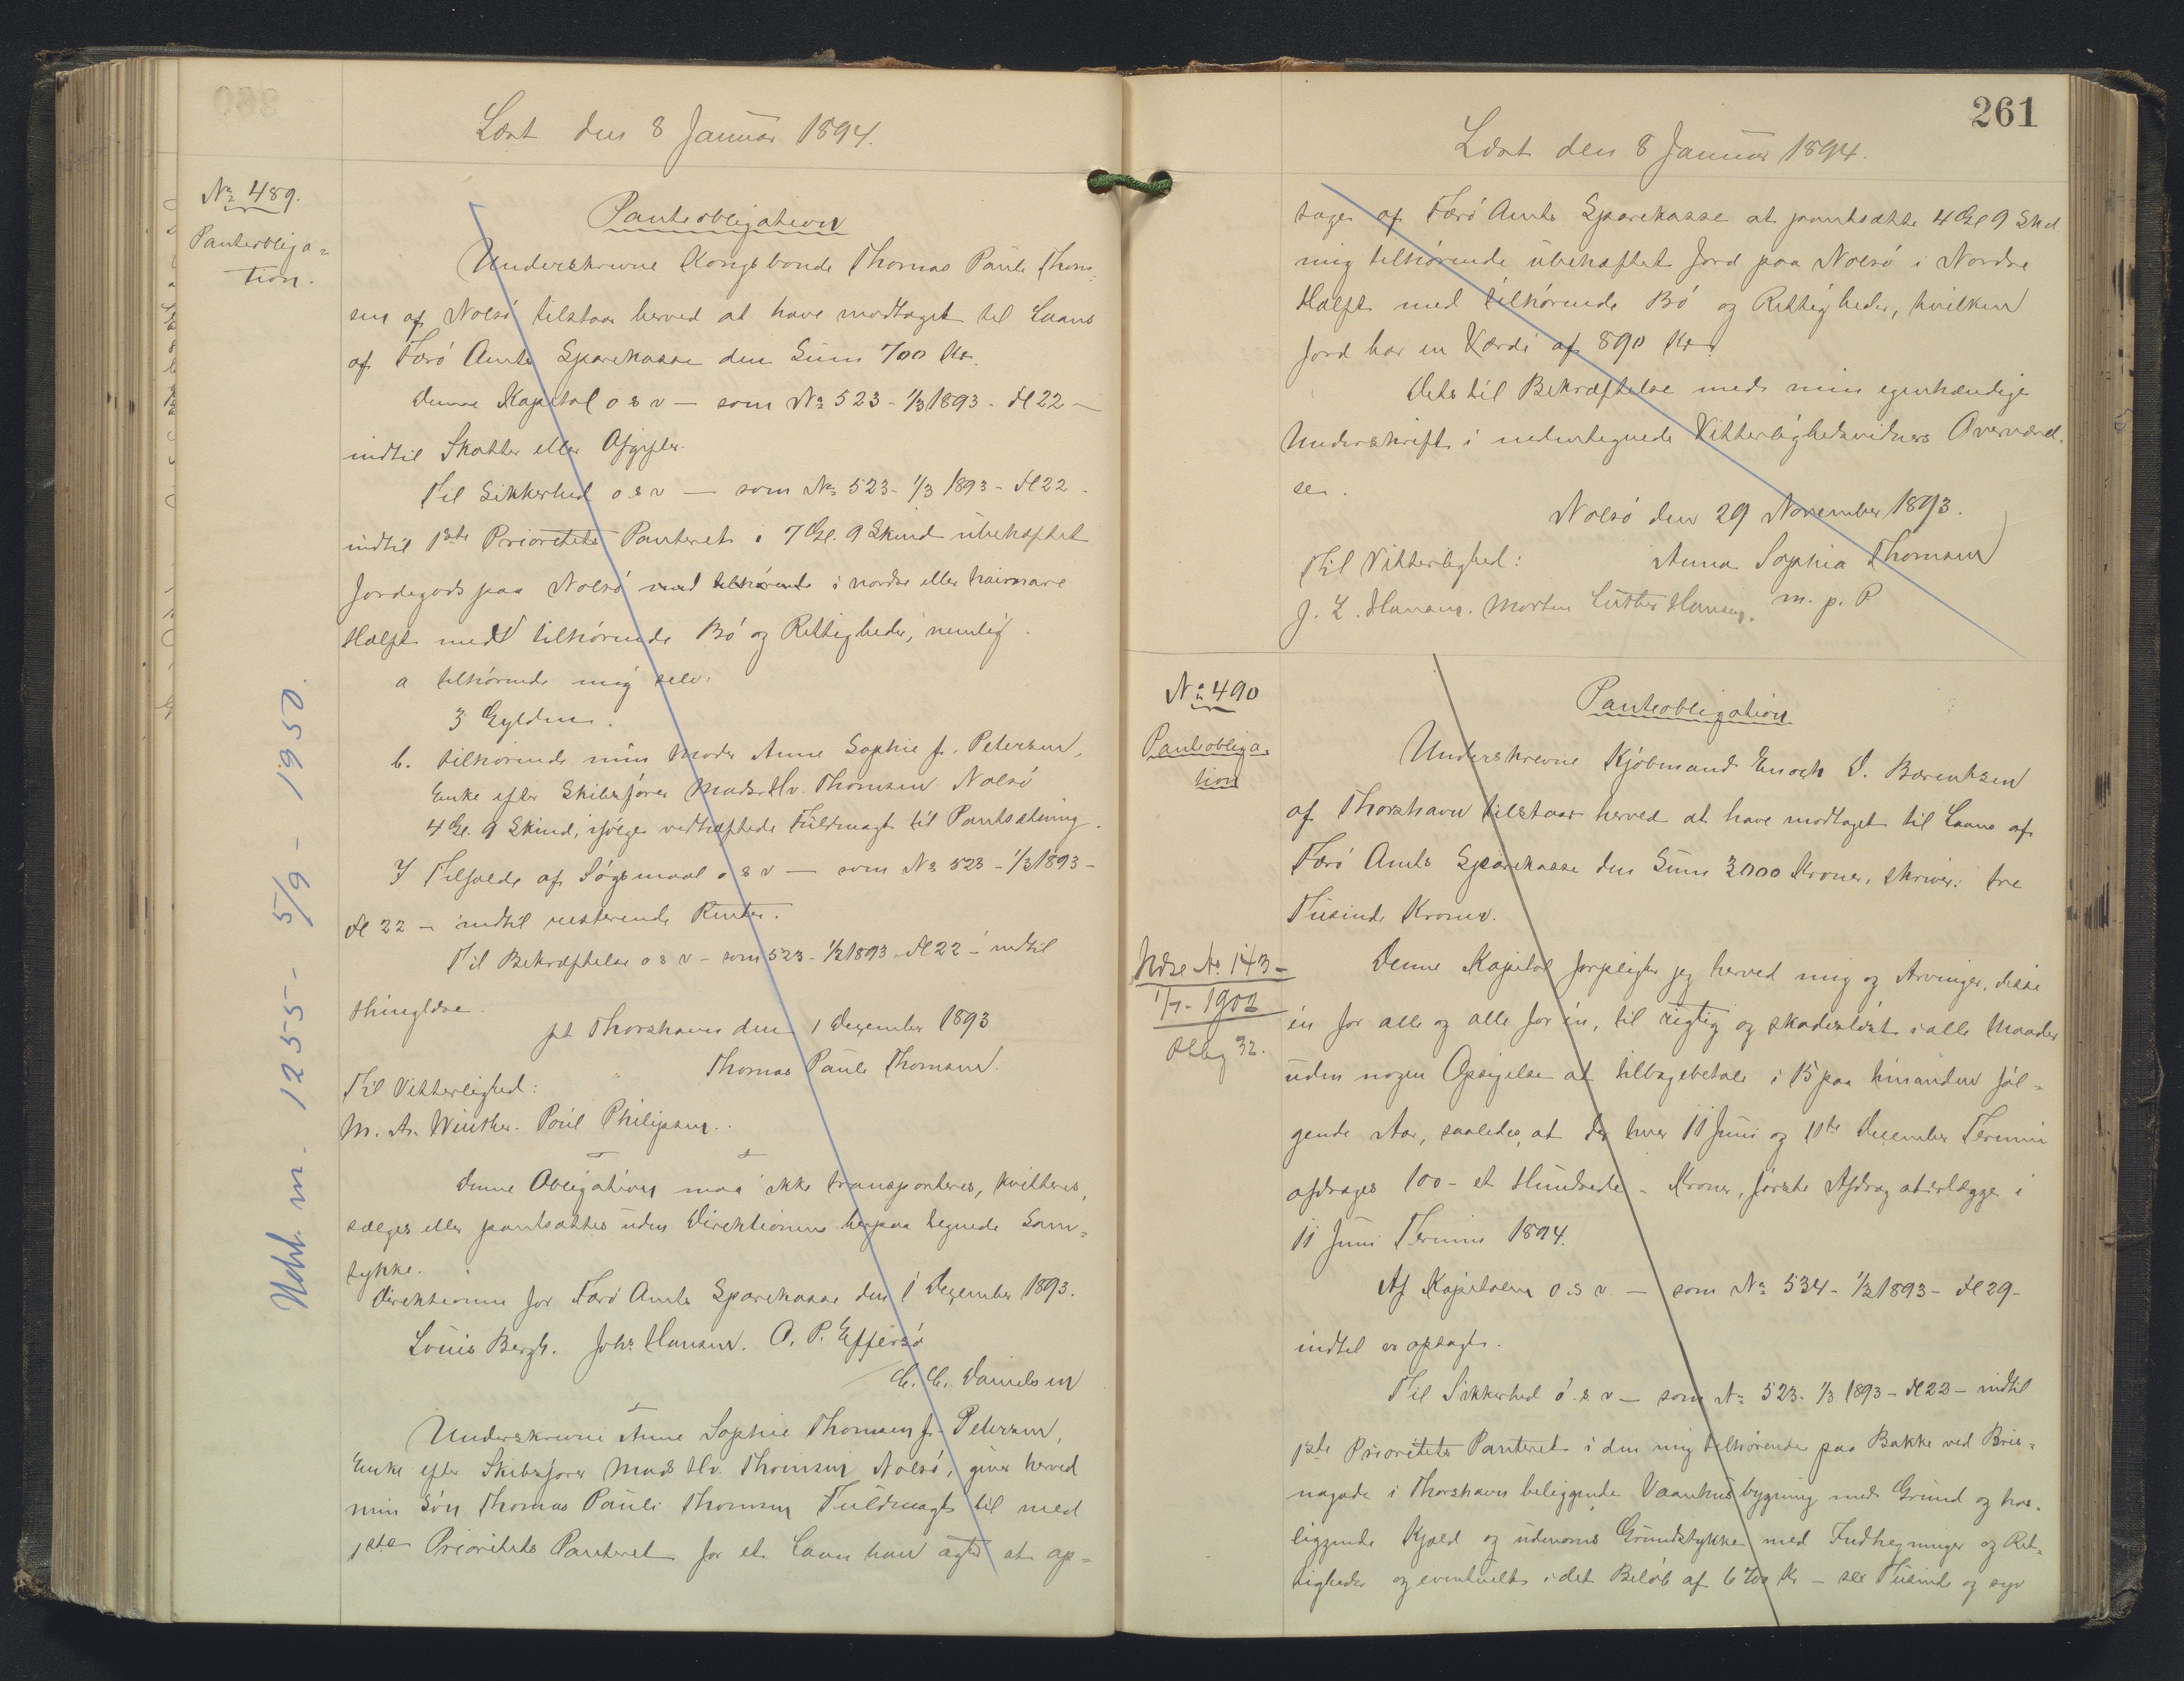 Læst den 8 Januar 1894.
No 489.
Panteobliga=
tion.
Panteobligation
Underskrevne Kongsbonde Thomas Pauli Thom=
sen af Nolsö tilstaar herved at have modtaget til Laans
af Færö Amts Sparekasse den Sum 700 Kr.
Denne Kapital o s v — som No 523 - 1/3 1893 - Æ 22 —
indtil Skatter eller Afgifter.
Til Sikkerhed o s v — som No 523 - 1/3 1893 - Æ 22 -
indtil 1ste Prioritets Panteret i 7 Gl. 9 Skind ubehæftet
Jordegods paa Nolsö med tilhörende i nordre eller heimare
Halft med tilhörende Bö og Rettigheder, nemlig.
a tilhörende mig selv:
3 Gylden.
b. tilhörende min Moder Anne Sophie f. Petersen,
Enke efter Skibsförer Mads Hr. Thomsen Nolsö
4 Gl. 9 Skind, ifölge vedhæftede Fuldmagt til Pantsætning.
I Tilfælde af Sögsmaal o s v — som No 523 - 1/3 1893 -
Æ 22 — indtil resterende Renter.
Til Bekræftelse o s v - som 523 - 1/3 1893 - Æ 22 - indtil
thinglæse.
pt Thorshavn den 1 Dezember 1893
Thomas Pauli Thomsen.
Til Vitterlighed:
M. A. Winther. Poul Philipsen.
Denne Obligation maa ikke transporteres, kvitteres,
sælges eller pantsættes uden Direktionens herpaa tegnede Sam=
tykke.
Direktionen for Færö Amts Sparekasse den 1 Dezember 1893.
Louis Bergh. Johs Hansen. O. P. Effersö
C. C. Danielsen
Underskrevne Anne Sophie Thomsen f. Petersen,
Enke efter Skibsförer Mads Hr. Thomsen Nolsö, giver herved
min Sön Thomas Pauli Thomsen Fuldmagt til med
1ste Prioritets Panteret for et Laan han agter at op=
Udsl. m. 1255 - 5/9 - 1950.
261
Læst den 8 Januar 1894.
tage af Færö Amts Sparekasse at pantsætte 4 Gl 9 Skd.
mig tilhörende ubehæftet Jord paa Nolsö i Nordre
Halft med tilhörende Bö og Rettigheder, hvilken
Jord har en Værdi af 890 Kr.
Dets til Bekræftelse med min egenhændige
Underskrift i nedentegnede Vitterlighedsvidners Overværel=
se.
Nolsö den 29 November 1893.
Til Vitterlighed: Anna Sophia Thomsen
J. L. Hansen. Morten Luther Hansen. m. p. P
No 490
Panteobliga=
tion
Panteobligation
Underskrevne Kjöbmand Enoch D. Bærentsen
af Thorshavn tilstaar herved at have modtaget til Laans af
Færö Amts Sparekasse den Sum 3000 Kroner, skriver: tre
Tusinde Kroner.
Udse No 143 -
1/7 - 1902
Oblig 32.
Denne Kapital forpligter jeg herved mig og Arvinger, disse
én for alle og alle for én, til rigtig og skadeslöst i alle Maader
uden nogen Opsigelse at tilbagebetale i 15 paa hinanden föl=
gende Aar, saaledes, at der hver 11 Juni og 11te December Termin
afdrages 100 - et Hundrede - Kroner, förste Afdrag at erlægge i
11 Juni Termin 1894.
Af Kapitalen o. s v. — som No 534 - 1/3 1893 - Æ 29 -
indtil er opsagt.
Til Sikkerhed o. s v — som No 523 - 1/3 1893 - Æ 22 - indtil
1ste Prioritets Panteret i den mig tilhörende paa Bakke ved Brin=
nagade i Thorshavn beliggende Vaanhusbygning med Grund og hos=
liggende Kjæld og udenoms Grundstykke med Indhegninger og Ret=
tigheder og eventuelt i det Belöb af 6700 Kr — sex Tusinde og syv